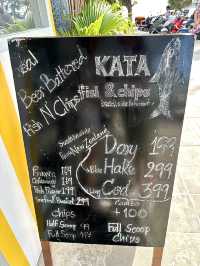 Real
Beer Battered
Fish N' Chips
KATA
fish & chips
Sustainable
from New Zealand
Dory 199
Blue Hake 299
Ling Cod 399
Prawns 189
Calamari 189
Fish Thins 199
Seafood Basket 299
chips
Half Scoop
Full Scoop
+100
Full Scoop
Chips